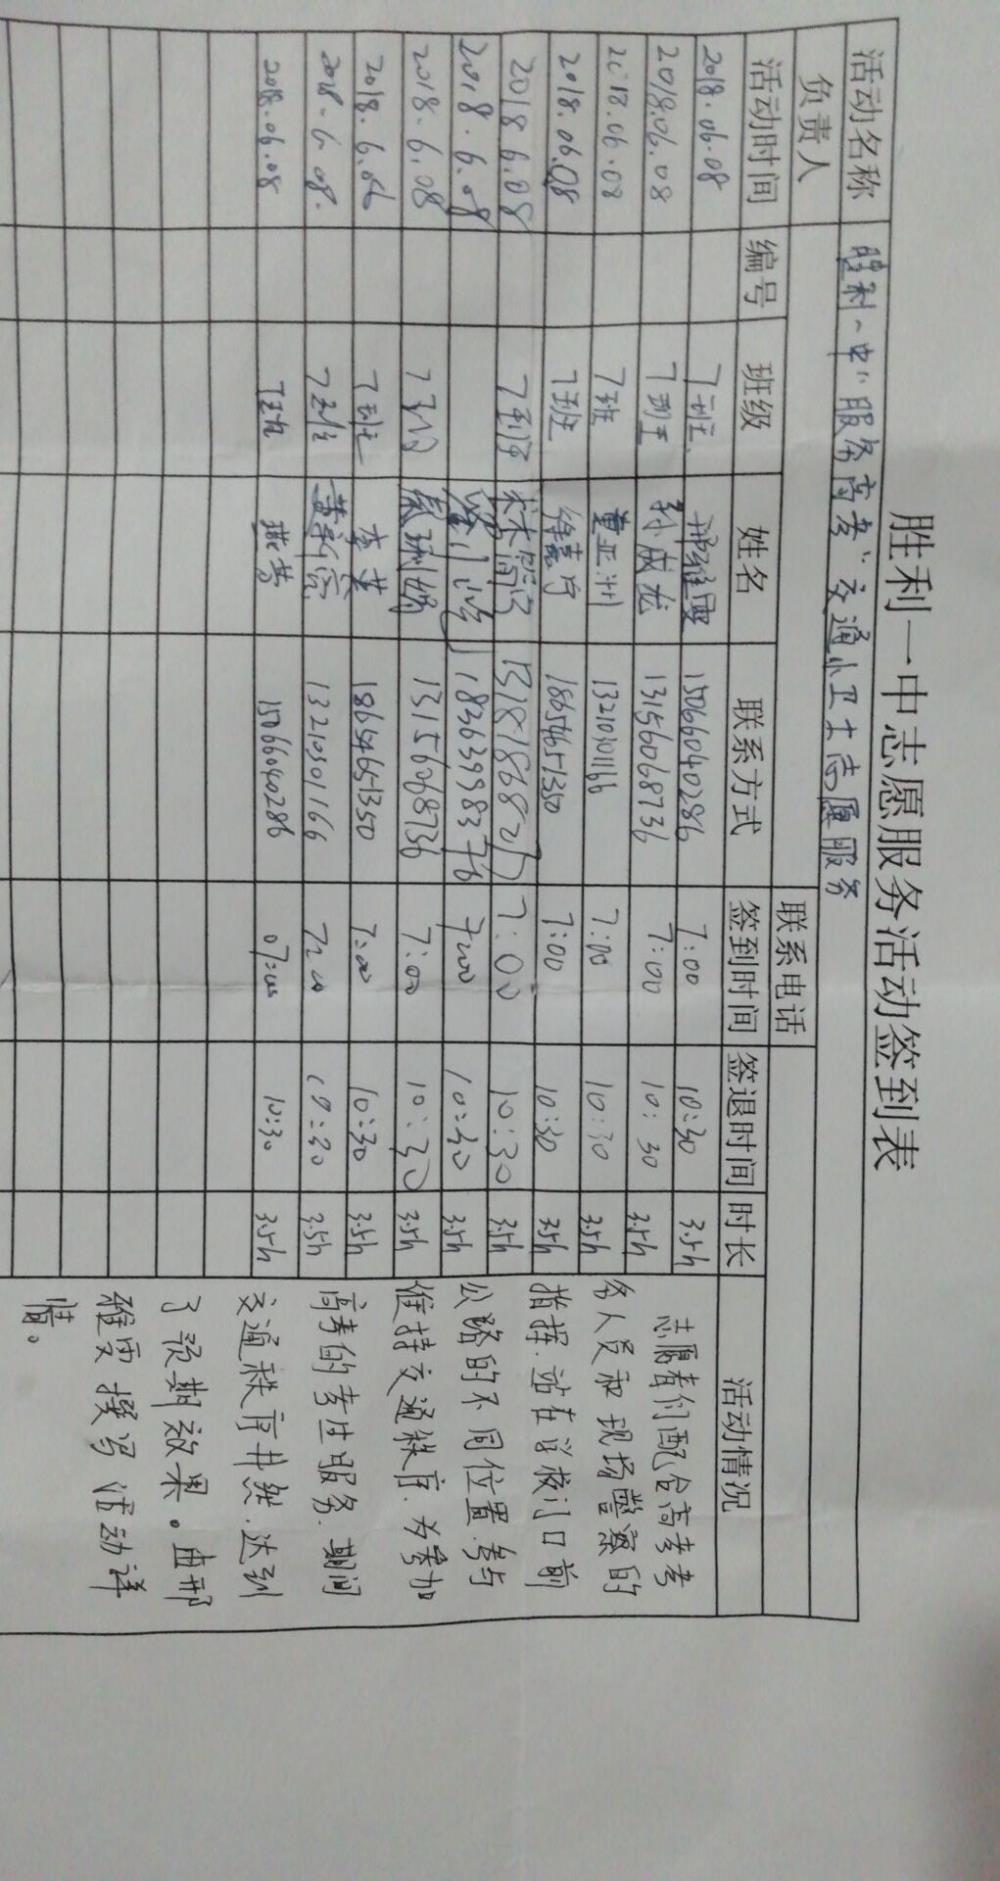 胜利一中志愿服务活动签到表
活动名称 胜利一中"服务高考"交通小卫士志愿服务
负责人 联系电话
活动时间 编号 班级 姓名 联系方式 签到时间 签退时间 时长 活动情况
2018.06.08 7班 15066040286 7:00 10:30 3.5h
2018.06.08 7班 孙成龙 13156068736 7:00 10:30 3.5h
2018.06.08 7班 董亚洲 13210301166 7:00 10:30 3.5h
2018.06.08 7班 徐嘉宁 18654651350 7:00 10:30 3.5h
2018 6.08 7班 7:00 10:30 3.5h
2018.6.08 7:00 10:30 3.5h
2018.6.08 7班 13156068736 7:00 10:30 3.5h
2018.6.08 7班 李菲 18654651350 7:00 10:30 3.5h
2018.6.08. 7班 13210301166 7:00 10:30 3.5h
2018.06.08 7班 15066040286 07:00 10:30 3.5h
志愿者们配合高考考
务人员和现场警察的
指挥.站在学校门口前
公路的不同位置.参与
维持交通秩序.为参加
高考的考生服务.期间
交通秩序井然.达到
了预期效果。由邢
雅雯撰写活动详
情。